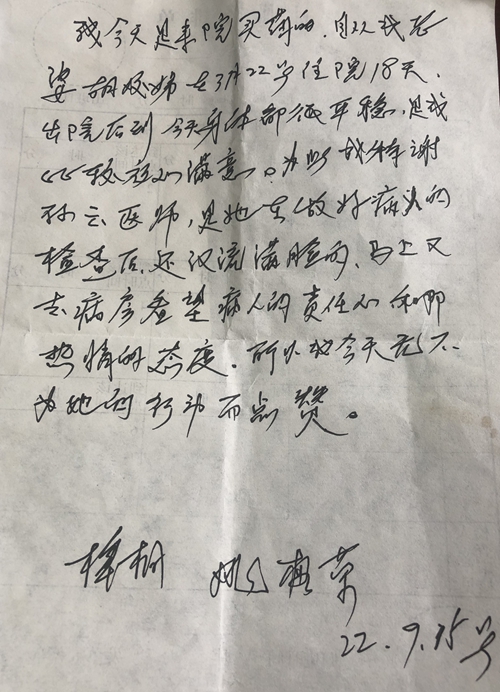 我今天是来院买药的，自从我老
婆胡 姊 在3月22号住院18天，
出院后到今天身体都很平稳，是我
比较放心满意。为此我特谢
孙云医师，是她在做好病人的
检查后，还汉流满脸的，马上又
去病房看望病人的责任心和那
热情的态度。所以我今天无不
为她的行动而点赞。
姚 荣
22.9.15号